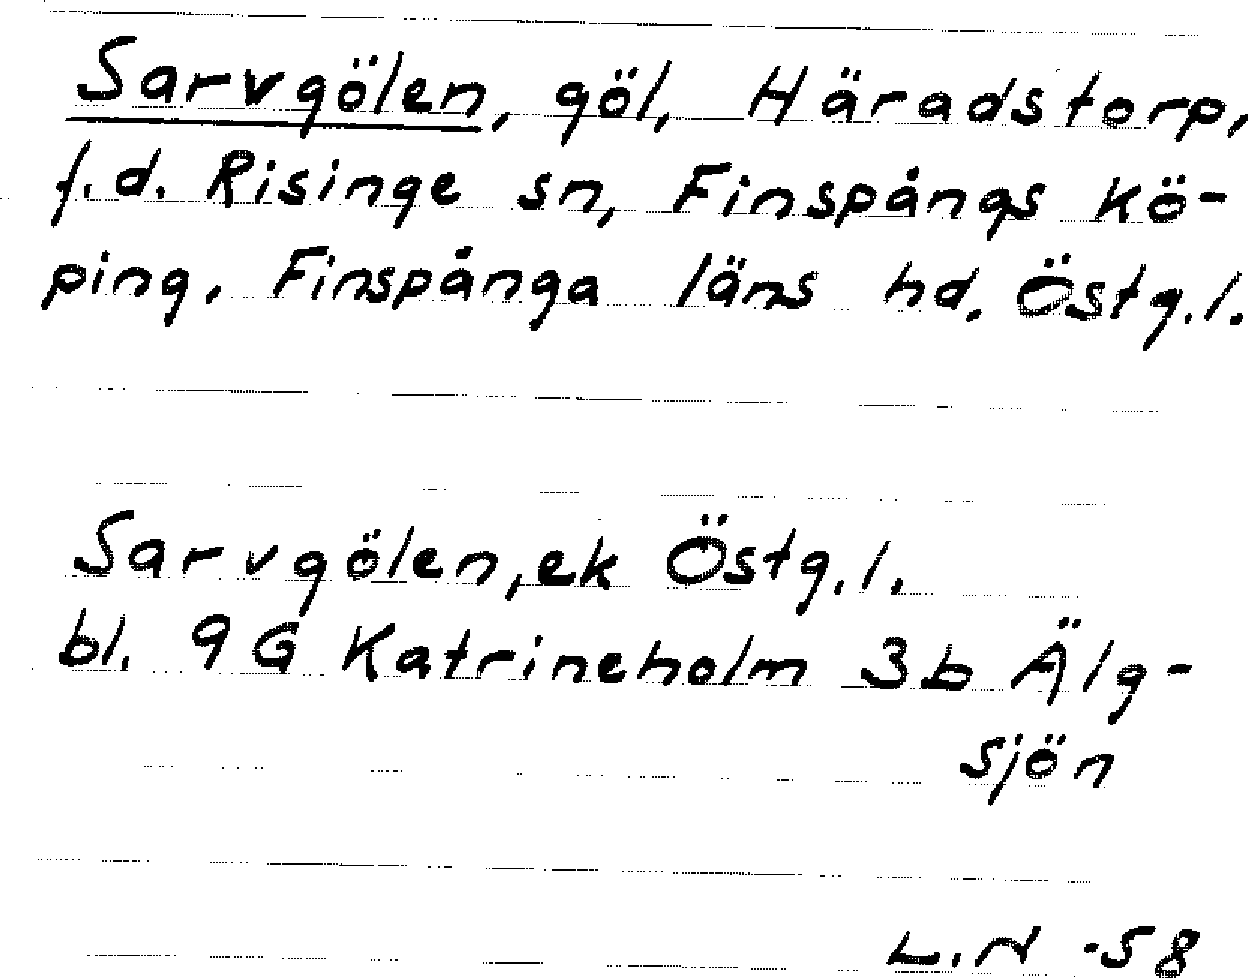 Sarvgölen, göl, Häradstorp,
f.d. Risinge sn, Finspångs kö-
ping, Finspånga läns hd. Östg.l.
Sarvgölen, ek Östg.l.
bl. 9G Katrineholm 3b Älg-
sjön
L.N -58